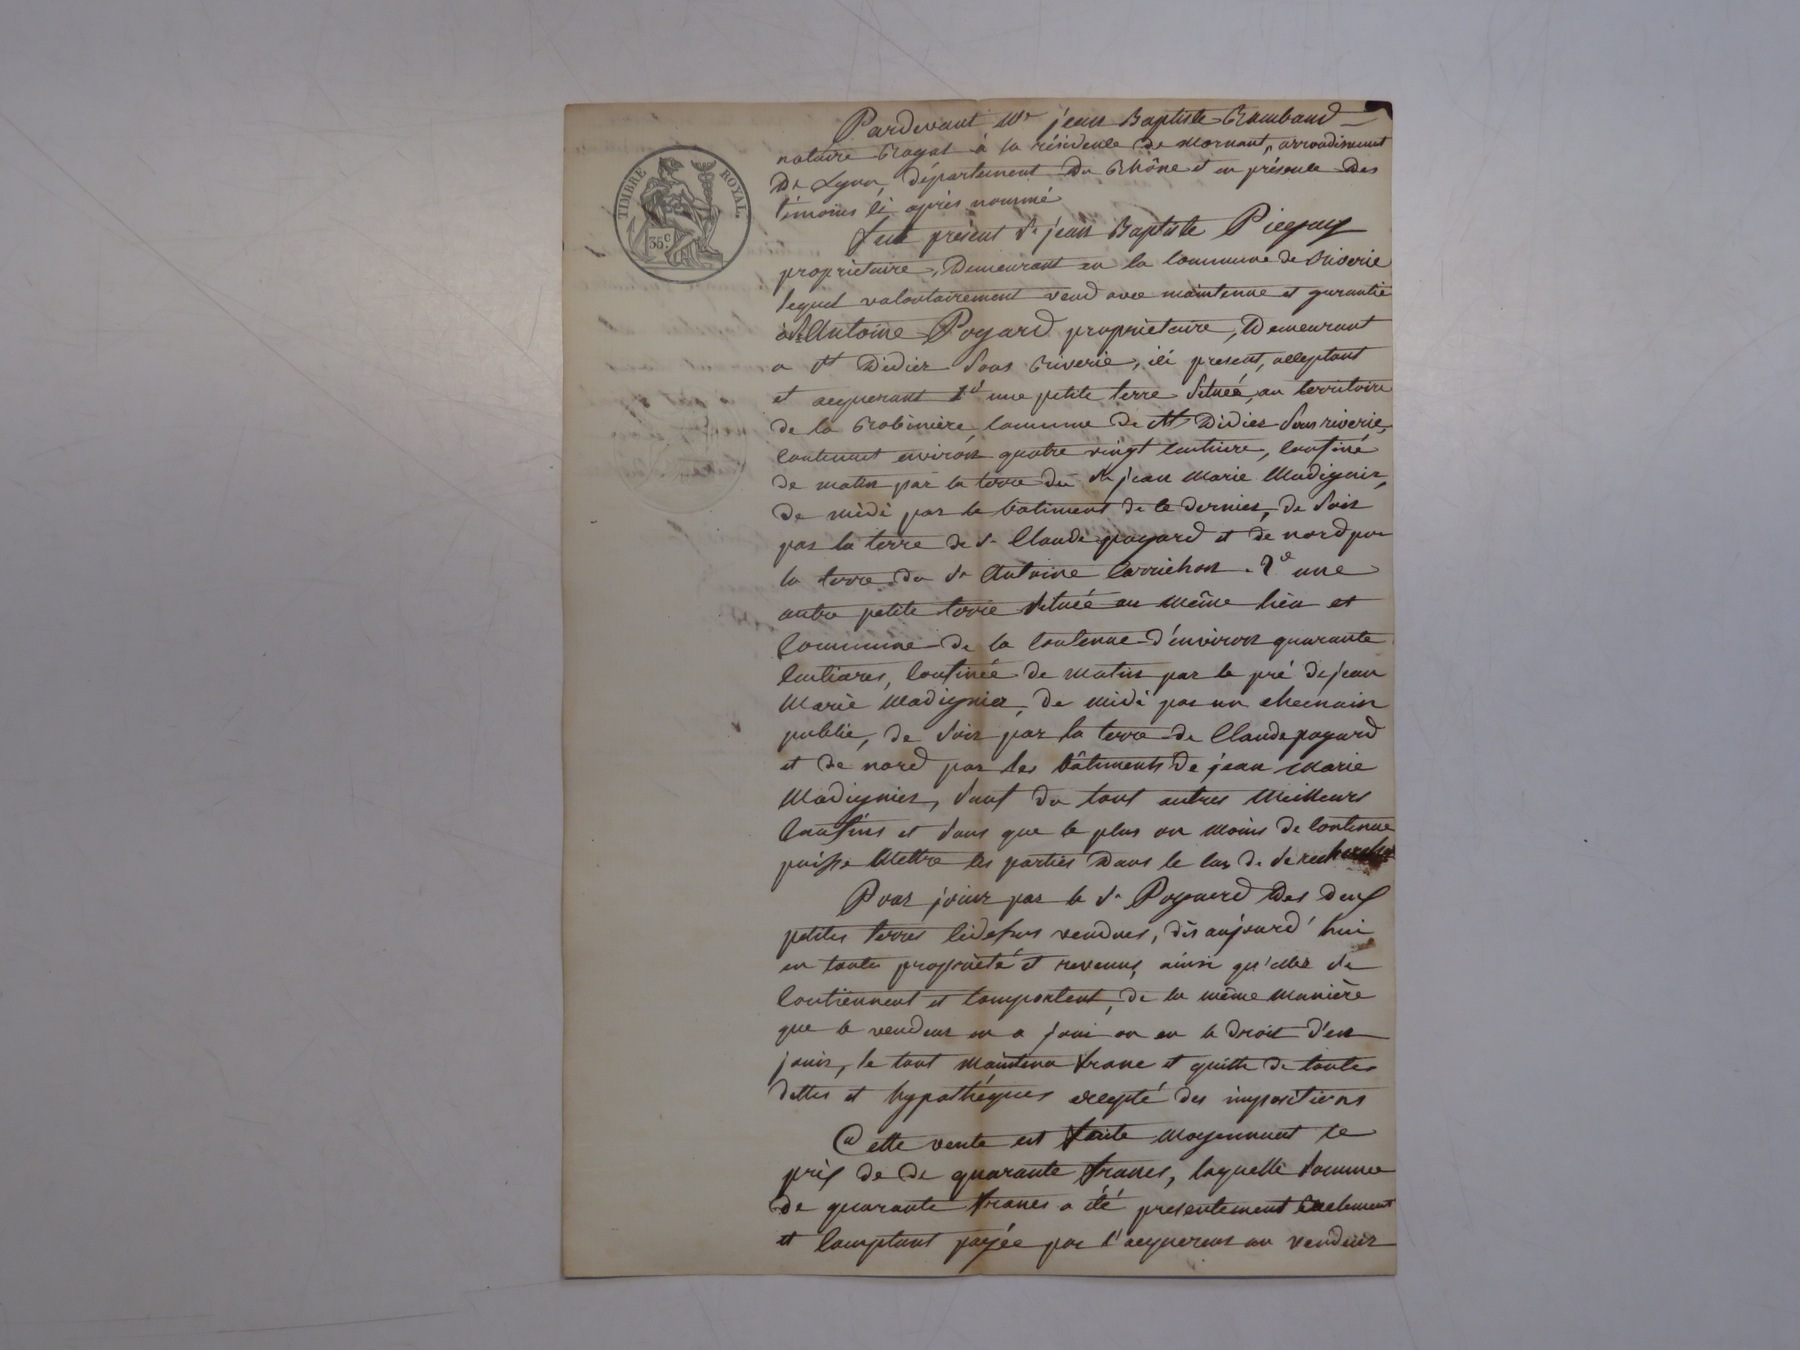 TIMBRE ROYAL.
35c.
Pardevant Me jean Baptiste Rambaud
notaire Royal à la résidence de Mornant, arrondisment
De Lyon, département Du Rhône et en présence Des
témoins ci après nommé
fut présent Sr jean Baptiste Piegay
proprietaire, Demeurant en la Commune de Riverie
lequel valontairement vend avec maintenue et garantie
à Sr Antoine Pogard proprietaire, Demeurant
a St Didier Sous Riverie, ici present, acceptant
et aequerant 1o une petite terre Située, au territoire
de la Robinière Commune de St Didier Sous riverie,
Contenant environ quatre vingt Centiare, Confiné
de matin par la terre du Sr jean Marie Madignier,
de midi par le batiment de ce dernier, de Soir
par la terre de Sr Claude pogard et de nord par
la terre du Sr Antoine Corrichon. 2o une
autre petite terre Située au même lieu et
Commune de la Contenue d'environ quarante
Centiares, Confinée de matin par le pré de jean
Marie Madignier, de midi par un chemain
public, de Soir par la terre de Claude pogard
et de nord par les bâtiments de jean Marie
Madignier, Sauf du tout autres Meilleurs
Confins et Sans que le plus ou moins de Contenue
puisse Mettre les parties Dans le Cas de Se rechercher
Pour jouir par le Sr Pogard Des deux
petites terres Cidessus vendues, dès aujourd'hui
en toutes propriété et revenus, ainsi qu'elles Se
Contiennent et Comportent, de la même manière
que le vendeur en a joui ou eu le droit d'en
jouir, le tout maintenu franc et quitte de toutes
dettes et hypothéques excepté des impositions
Cette vente est faite moyennant le
prix de de quarante francs, laquelle Somme
de quarante francs a été presentement réelement
et Comptant payée par l'aequereur au vendeur